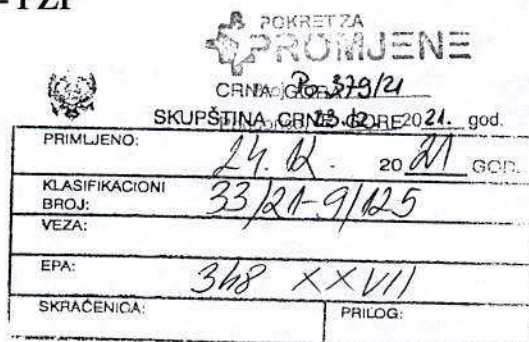 - PZP
POKRET ZA
PROMJENE
Po 379/21
CRNA GORA
SKUPŠTINA CRNE GORE
23.12. 2021. god.
PRIMLJENO: 24. 12. 2021 GOD.
KLASIFIKACIONI
BROJ: 33/21-9/125
VEZA:
EPA: 348 XXVII
SKRAĆENICA: PRILOG: